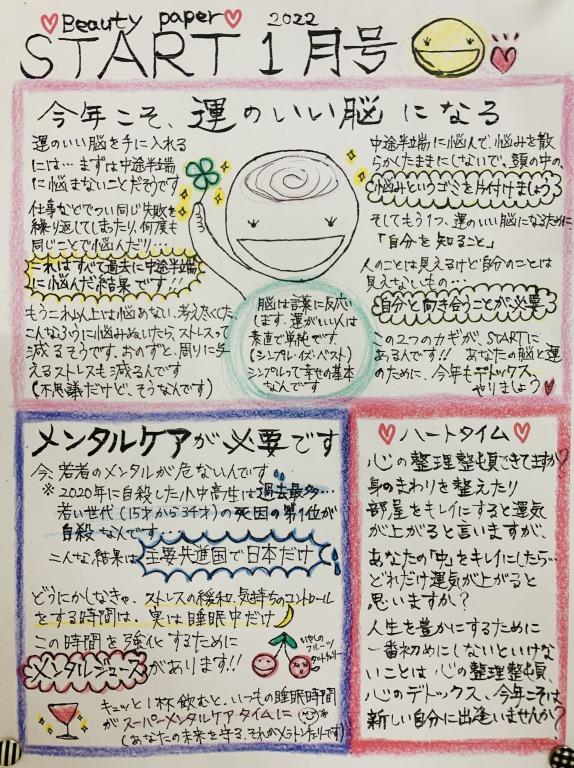 ♡Beauty paper♡ 2022
START 1月号
今年こそ、運のいい脳になる
運のいい脳を手に入れる
には… まずは中途半端
に悩まないことだそうです
仕事などでつい同じ失敗を
繰り返してしまったり、何度も
同じことで悩んだり…
これはすべて過去に中途半端
に悩んだ結果です!!
もうこれ以上は悩めない、考えたくない
こんなふうに悩みぬいたら、ストレスって
減るそうです。おのずと、周りに与
えるストレスも減るんです
(不思議だけど、そうなんです)
脳は言葉に反応し
ます。運がいい人は
素直で単純です
(シンプル・イズ・ベスト)
シンプルって幸せの基本
なんです
中途半端に悩んで、悩みを散
らかしたままにしないで、頭の中の、
悩みというゴミを片付けましょう
そしてもう1つ、運のいい脳になるために
「自分を知ること」
人のことは見えるけど自分のことは
見えないもの…
自分と向き合うことが必要
この2つのカギが、STARTに
あるんです!! あなたの脳と運
のために、今年もデトックス
やりましょう♡
メンタルケアが必要です
今、若者のメンタルが危ないんです
※2020年に自殺した小中高生は過去最多…
若い世代(15才から34才)の死因の第1位が
自殺なんです…
こんな結果は主要先進国で日本だけ
どうにかしなきゃ、ストレスの緩和、気持ちのコントロール
をする時間は、実は睡眠中だけ
この時間を強化するために
メンタルジュースがあります!!
いやしの
フルーツ
タルトチェリー
キュッと1杯飲むと、いつもの睡眠時間
がスーパーメンタルケアタイムに
(あなたの未来を守る、それがメラトンチェリーです)
♡ハートタイム♡
心の整理整頓できてますか?
身のまわりを整えたり
部屋をキレイにすると運気
が上がると言いますが、
あなたの「中」をキレイにしたら…
どれだけ運気が上がると
思いますか?
人生を豊かにするために
一番初めにしないといけな
いことは心の整理整頓
心のデトックス、今年こそは
新しい自分に出逢いませんか?